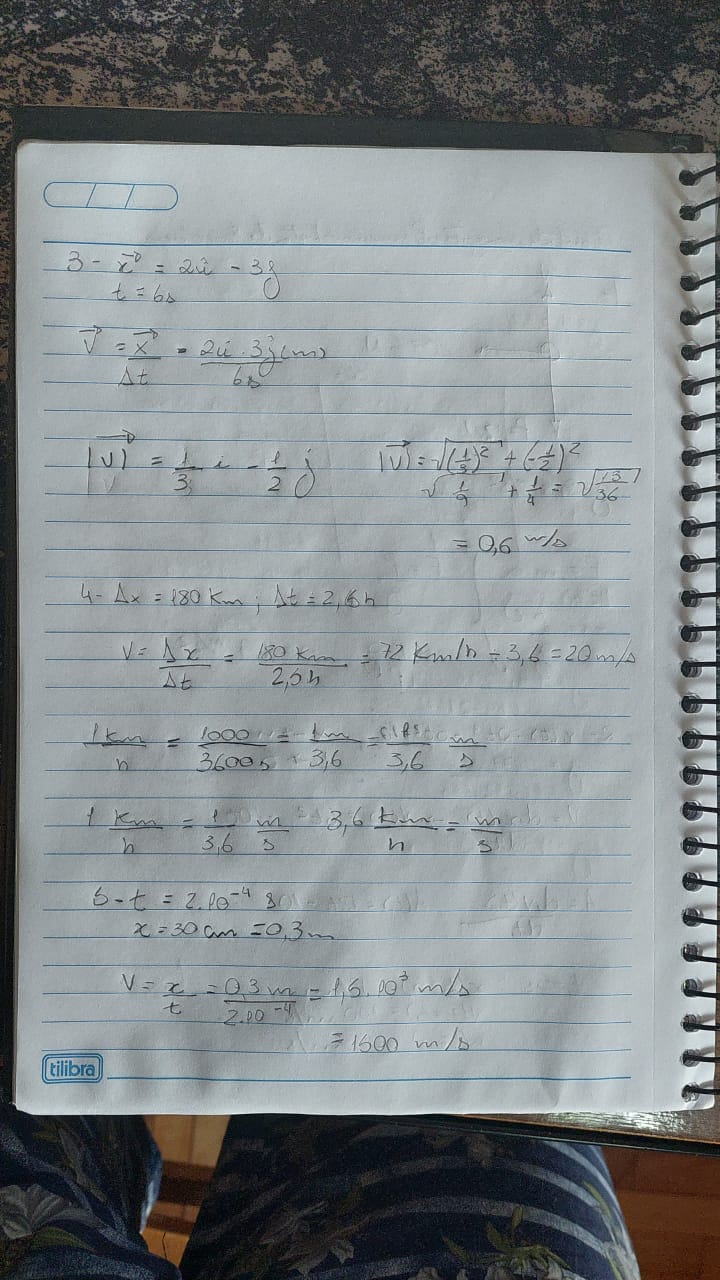 3 - x⃗ = 2i - 3j
t = 6s
V⃗ = x⃗/Δt = 2i - 3j (m)/6s
|V⃗| = 1/3 i - 1/2 j
|V⃗| = √(1/3)² + (-1/2)²
√1/9 + 1/4 = √13/36
= 0,6 m/s
4- Δx = 180 Km ; Δt = 2,5h
V = Δx/Δt = 180 Km/2,5h = 72 Km/h ÷ 3,6 = 20 m/s
1 km/h = 1000/3600 s = 1m/3,6 = /3,6 m/s
1 Km/h = 1/3,6 m/s 3,6 Km/h = m/s
5 - t = 2.10⁻⁴ s
x = 30 cm = 0,3 m
V = x/t = 0,3 m/2.10⁻⁴ = 1,5.10³ m/s
= 1500 m/s
tilibra